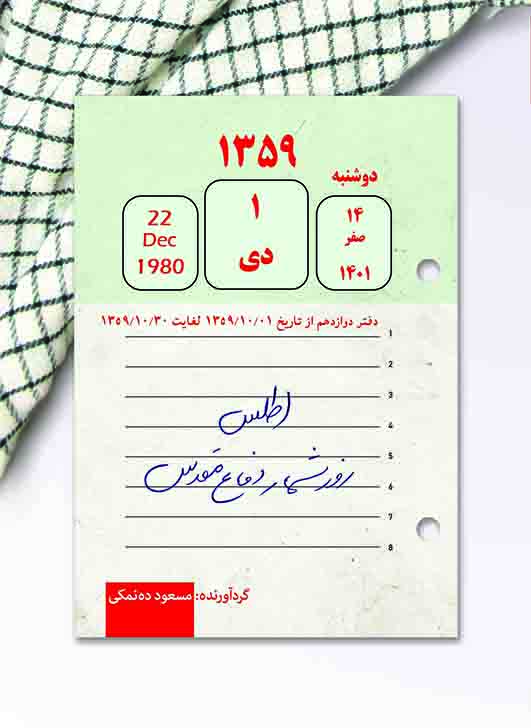 ۱۳۵۹
دوشنبه
۱۴
صفر
۱۴۰۱
۱
دی
22
Dec
1980
دفتر دوازدهم از تاریخ ۱۳۵۹/۱۰/۰۱ لغایت ۱۳۵۹/۱۰/۳۰
1
2
3
اطلس
4
5
روزشمار دفاع مقدس
6
7
8
گردآورنده: مسعود ده‌نمکی